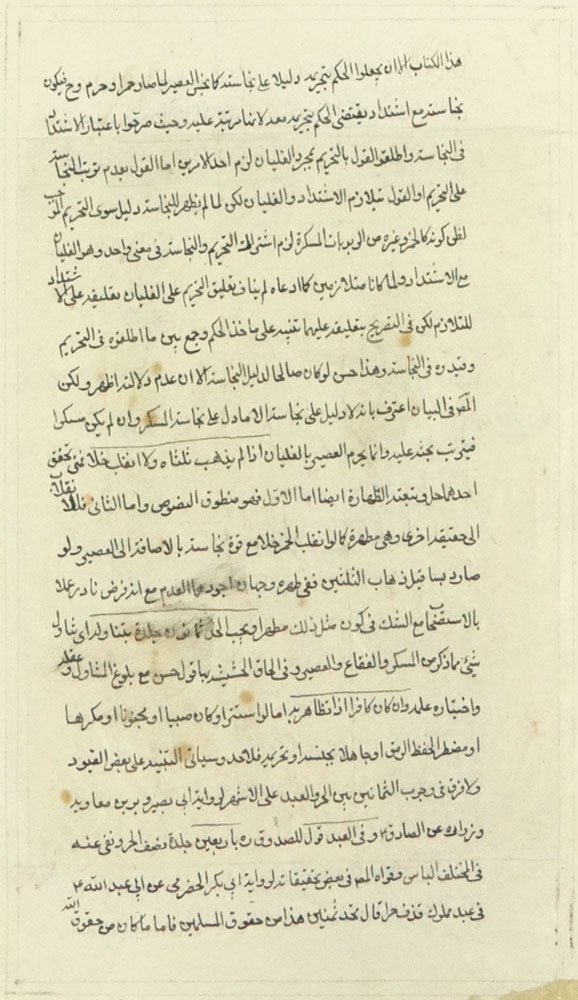 هذا الكتاب الا ان يجعلوا الحكم بتحريمه دليلا على نجاسته كما نجس العصير لما صار خمرا وحرم وح فيكون
نجاسته مع اشتداده يقتضى الحكم بتحريمه معه لانها مرتبة عليه وحيث صرحوا باعتبار الاشتداد
فى النجاسة واطلقوا القول بالتحريم بمجرد الغليان لزم احد الامرين اما القول بعدم ترتب النجاسة
على التحريم او القول بتلازم الاشتداد والغليان لكن لما لم يظهر للنجاسة دليل سوى التحريم الموجب
لظن كونه كالخمر وغيره من الربوبات المسكرة لزم اشتراك التحريم والنجاسة فى معنى واحد وهو الغليان
مع الاشتداد ولما كانا متلازمين كما ادعاه لم يناف تعليق التحريم على الغليان تعليقه على الاشتداد
للتلازم لكن فى التصريح بتعليقه عليهما تنبيه على ماخذ الحكم وجمع بين ما اطلقوه فى التحريم
وقيدوه فى النجاسة وهذا حسن لو كان صالحا لدليل النجاسة الا ان عدم دلالته اظهر ولكن
المص فى البيان اعترف بانه لا دليل على نجاسته الا ما دل على نجاسة المسكر وان لم يكن مسكرا
فيترتب بحثه عليه وانما يحرم العصير بالغليان اذا لم يذهب ثلثاه ولا انقلب خلا فمتى تحقق
احدهما حل وتبعته الطهارة ايضا اما الاول فهو منطوق النصوص واما الثانى فللانقلاب
الى حقيقة اخرى وهى مطهرة كما لو انقلب الخمر خلا مع قوة نجاسته بالاضافة الى العصير ولو
صار دبسا قبل ذهاب الثلثين ففى طهره وجهان اجودهما العدم مع انه فرض نادر عملا
بالاستصحاب مع الشك فى كون مثل ذلك مطهرا ويجب الحد ثمانون جلدة بتناوله اى تناول
شئ مما ذكر من المسكر والفقاع والعصير وفى الحاق الحشيشة بها قول حسن مع بلوغ المتناول وعقله
واختياره وعلمه وان كان كافرا اذا تظاهر به اما لو استتر او كان صبيا او مجنونا او مكرها
او مضطرا لحفظ الرمق او جاهلا بجنسه او تحريمه فلا حد وسياتى التنبيه على بعض القيود
ولا فرق فى وجوب الثمانين بين الحر والعبد على الاشهر لرواية ابى بصير وبريد بن معاوية
وزرارة عن الصادق ع وفى العبد قول للصدوق ره باربعين جلدة نصف الحر ونفى عنه
فى المختلف الباس وقواه المص فى بعض تحقيقاته لرواية ابى بكر الحضرمى عن ابى عبد الله ع
فى عبد مملوك قذف حرا قال يحد ثمانين هذا من حقوق المسلمين فاما ما كان من حقوق الله